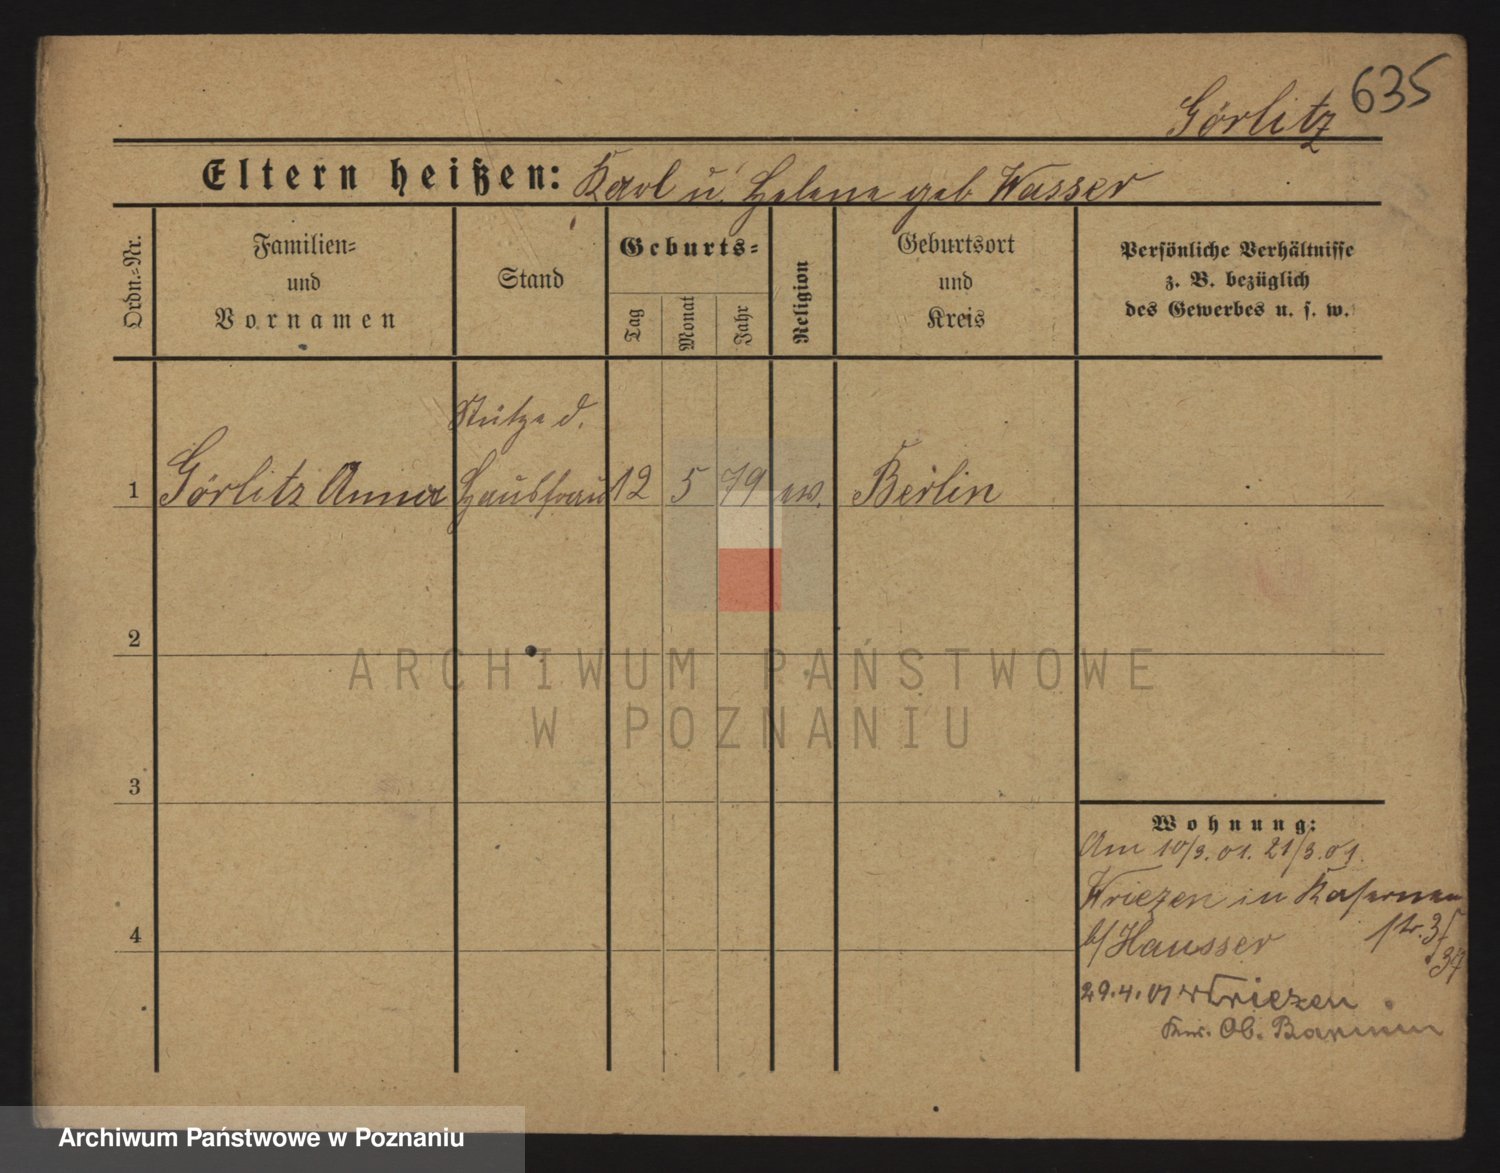 635
Görlitz
Eltern heißen: Karl u. Helene geb Wasser
Ordn.-Nr.
Familien-
und
Vornamen
Stand
Geburts-
Tag
Monat
Jahr
Religion
Geburtsort
und
Kreis
Persönliche Verhältnisse
z. B. bezüglich
des Gewerbes u. s. w.
Stütze d.
1 Görlitz Anna Hausfrau 12 5 79 ev. Berlin
2
ARCHIWUM PAŃSTWOWE
W POZNANIU
3
Wohnung:
Am 10/3.01. 21/3.01.
Wriezen in Kasernen
b/Hausser str. 3/
37
4
29.4.01 Wriezen
Ob. Barnim
Archiwum Państwowe w Poznaniu